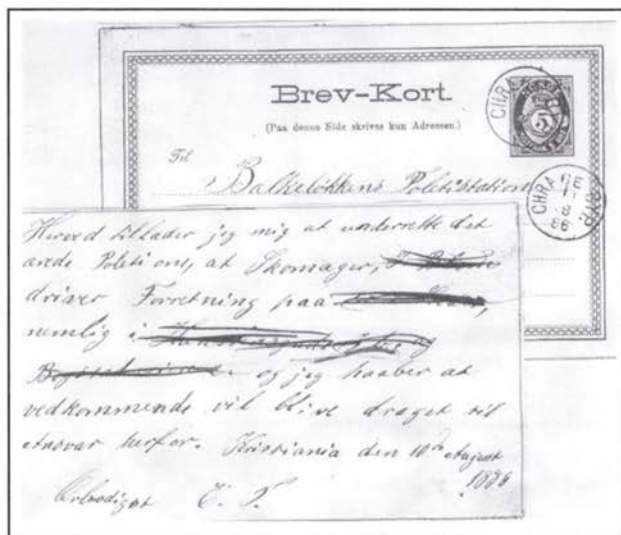 Brev-Kort.
(Paa denne Side skrives kun Adressen.)
Til
Balkeløkkens Politistation
5
CHRA
CHRA
11
8
86
Herved tillader jeg mig at underrette det
ærede Politi om, at Skomager,
driver Forretning paa
nemlig i og
og jeg haaber at
vedkommende vil blive draget til
Ansvar herfor. Kristiania den 10de August
1886
Ærbødigst C. T.